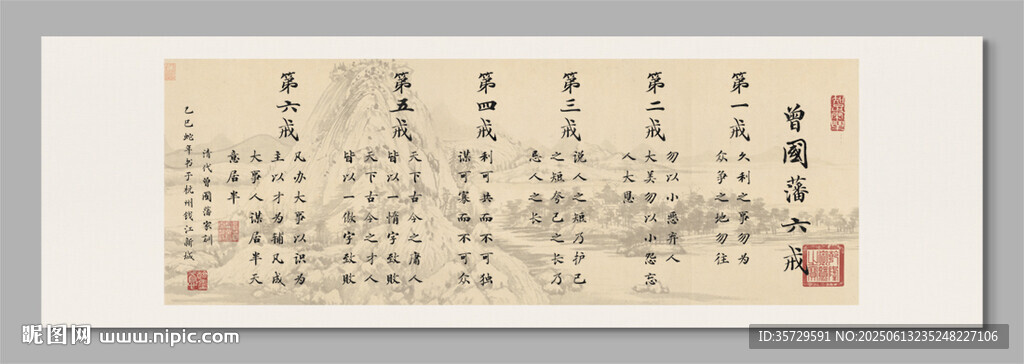 曾國藩六戒
第一戒
久利之事勿为
众争之地勿往
第二戒
勿以小恶弃人
大美勿以小怨忘
人大恩
第三戒
说人之短乃护己
之短夸己之长乃
忌人之长
第四戒
利可共而不可独
谋可寡而不可众
第五戒
天下古今之庸人
皆以一惰字致败
天下古今之才人
皆以一傲字致败
第六戒
凡办大事以识为
主以才为辅凡成
大事人谋居半天
意居半
清代曾國藩家訓
乙巳蛇年书于杭州钱江新城
昵图网 www.nipic.com
ID:35729591 NO:20250613235248227106